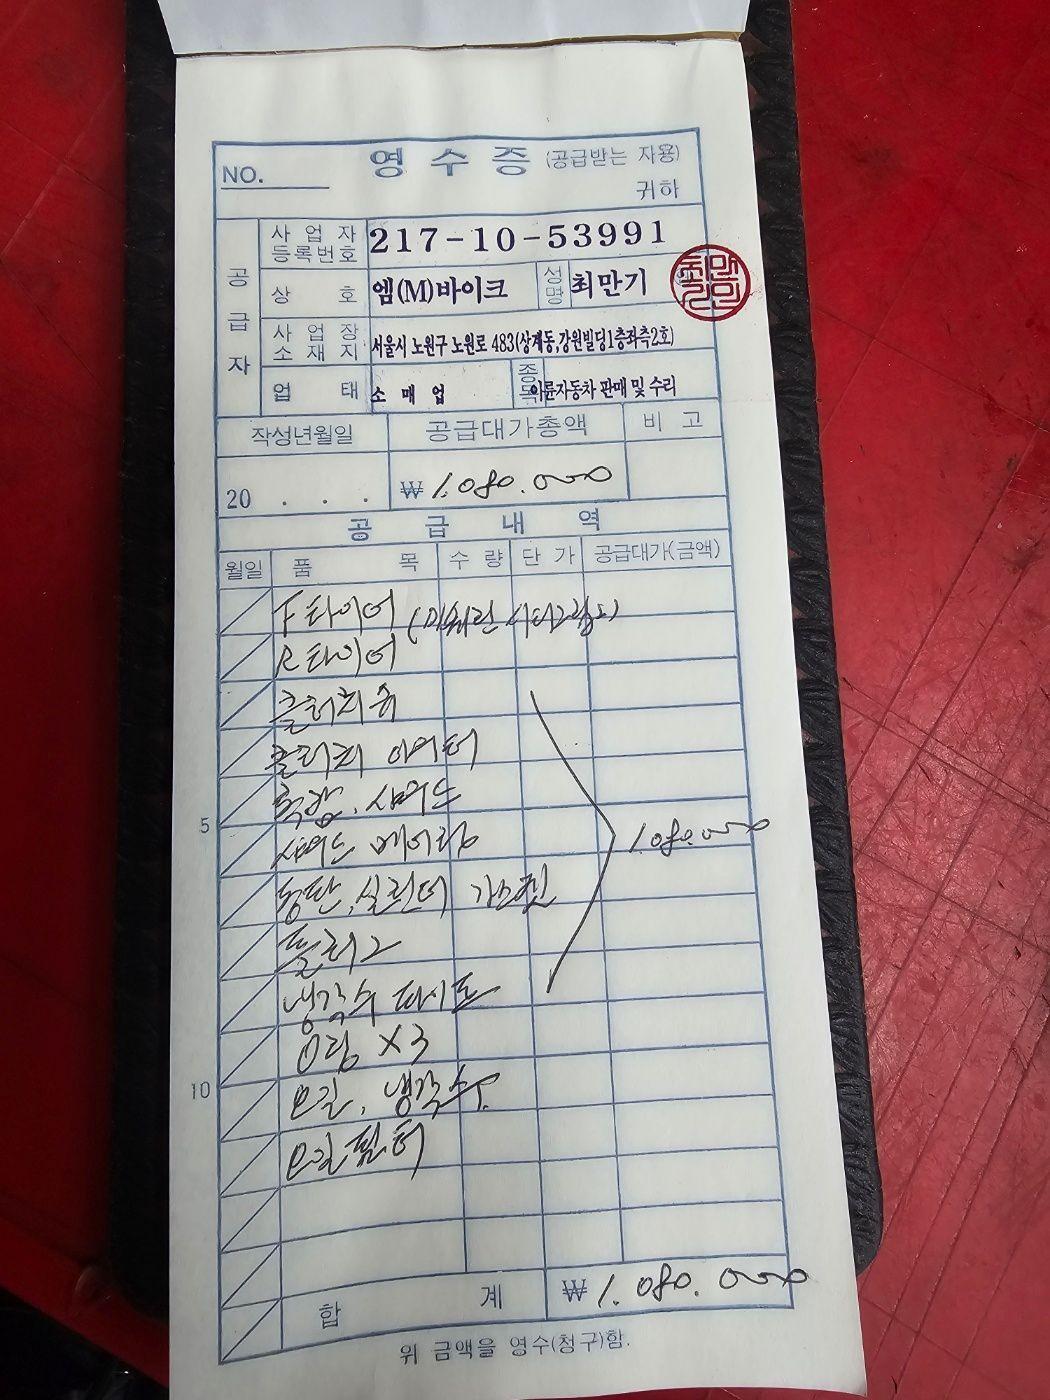 영 수 증 (공급받는 자용)
NO.
귀하
공급자
사업자등록번호 217-10-53991
상 호 엠(M)바이크 성명 최만기
사업장소재지 서울시 노원구 노원로 483(상계동,강원빌딩1층좌측2호)
업 태 소 매 업 종목 이륜자동차 판매 및 수리
작성년월일 공급대가총액 비 고
20 . . . ₩ 1.080.000
공 급 내 역
월일 품 목 수 량 단 가 공급대가(금액)
F타이어 (미쉐린 시티그립2)
R타이어
클러치슈
클러치 아우터
축, 사이드
베어링
5
1.080.000
실린더 가스켓
풀리
냉각수 파이프
O링 X3
10
오일, 냉각수
오일휠터
합 계 ₩ 1.080.000
위 금액을 영수(청구)함.